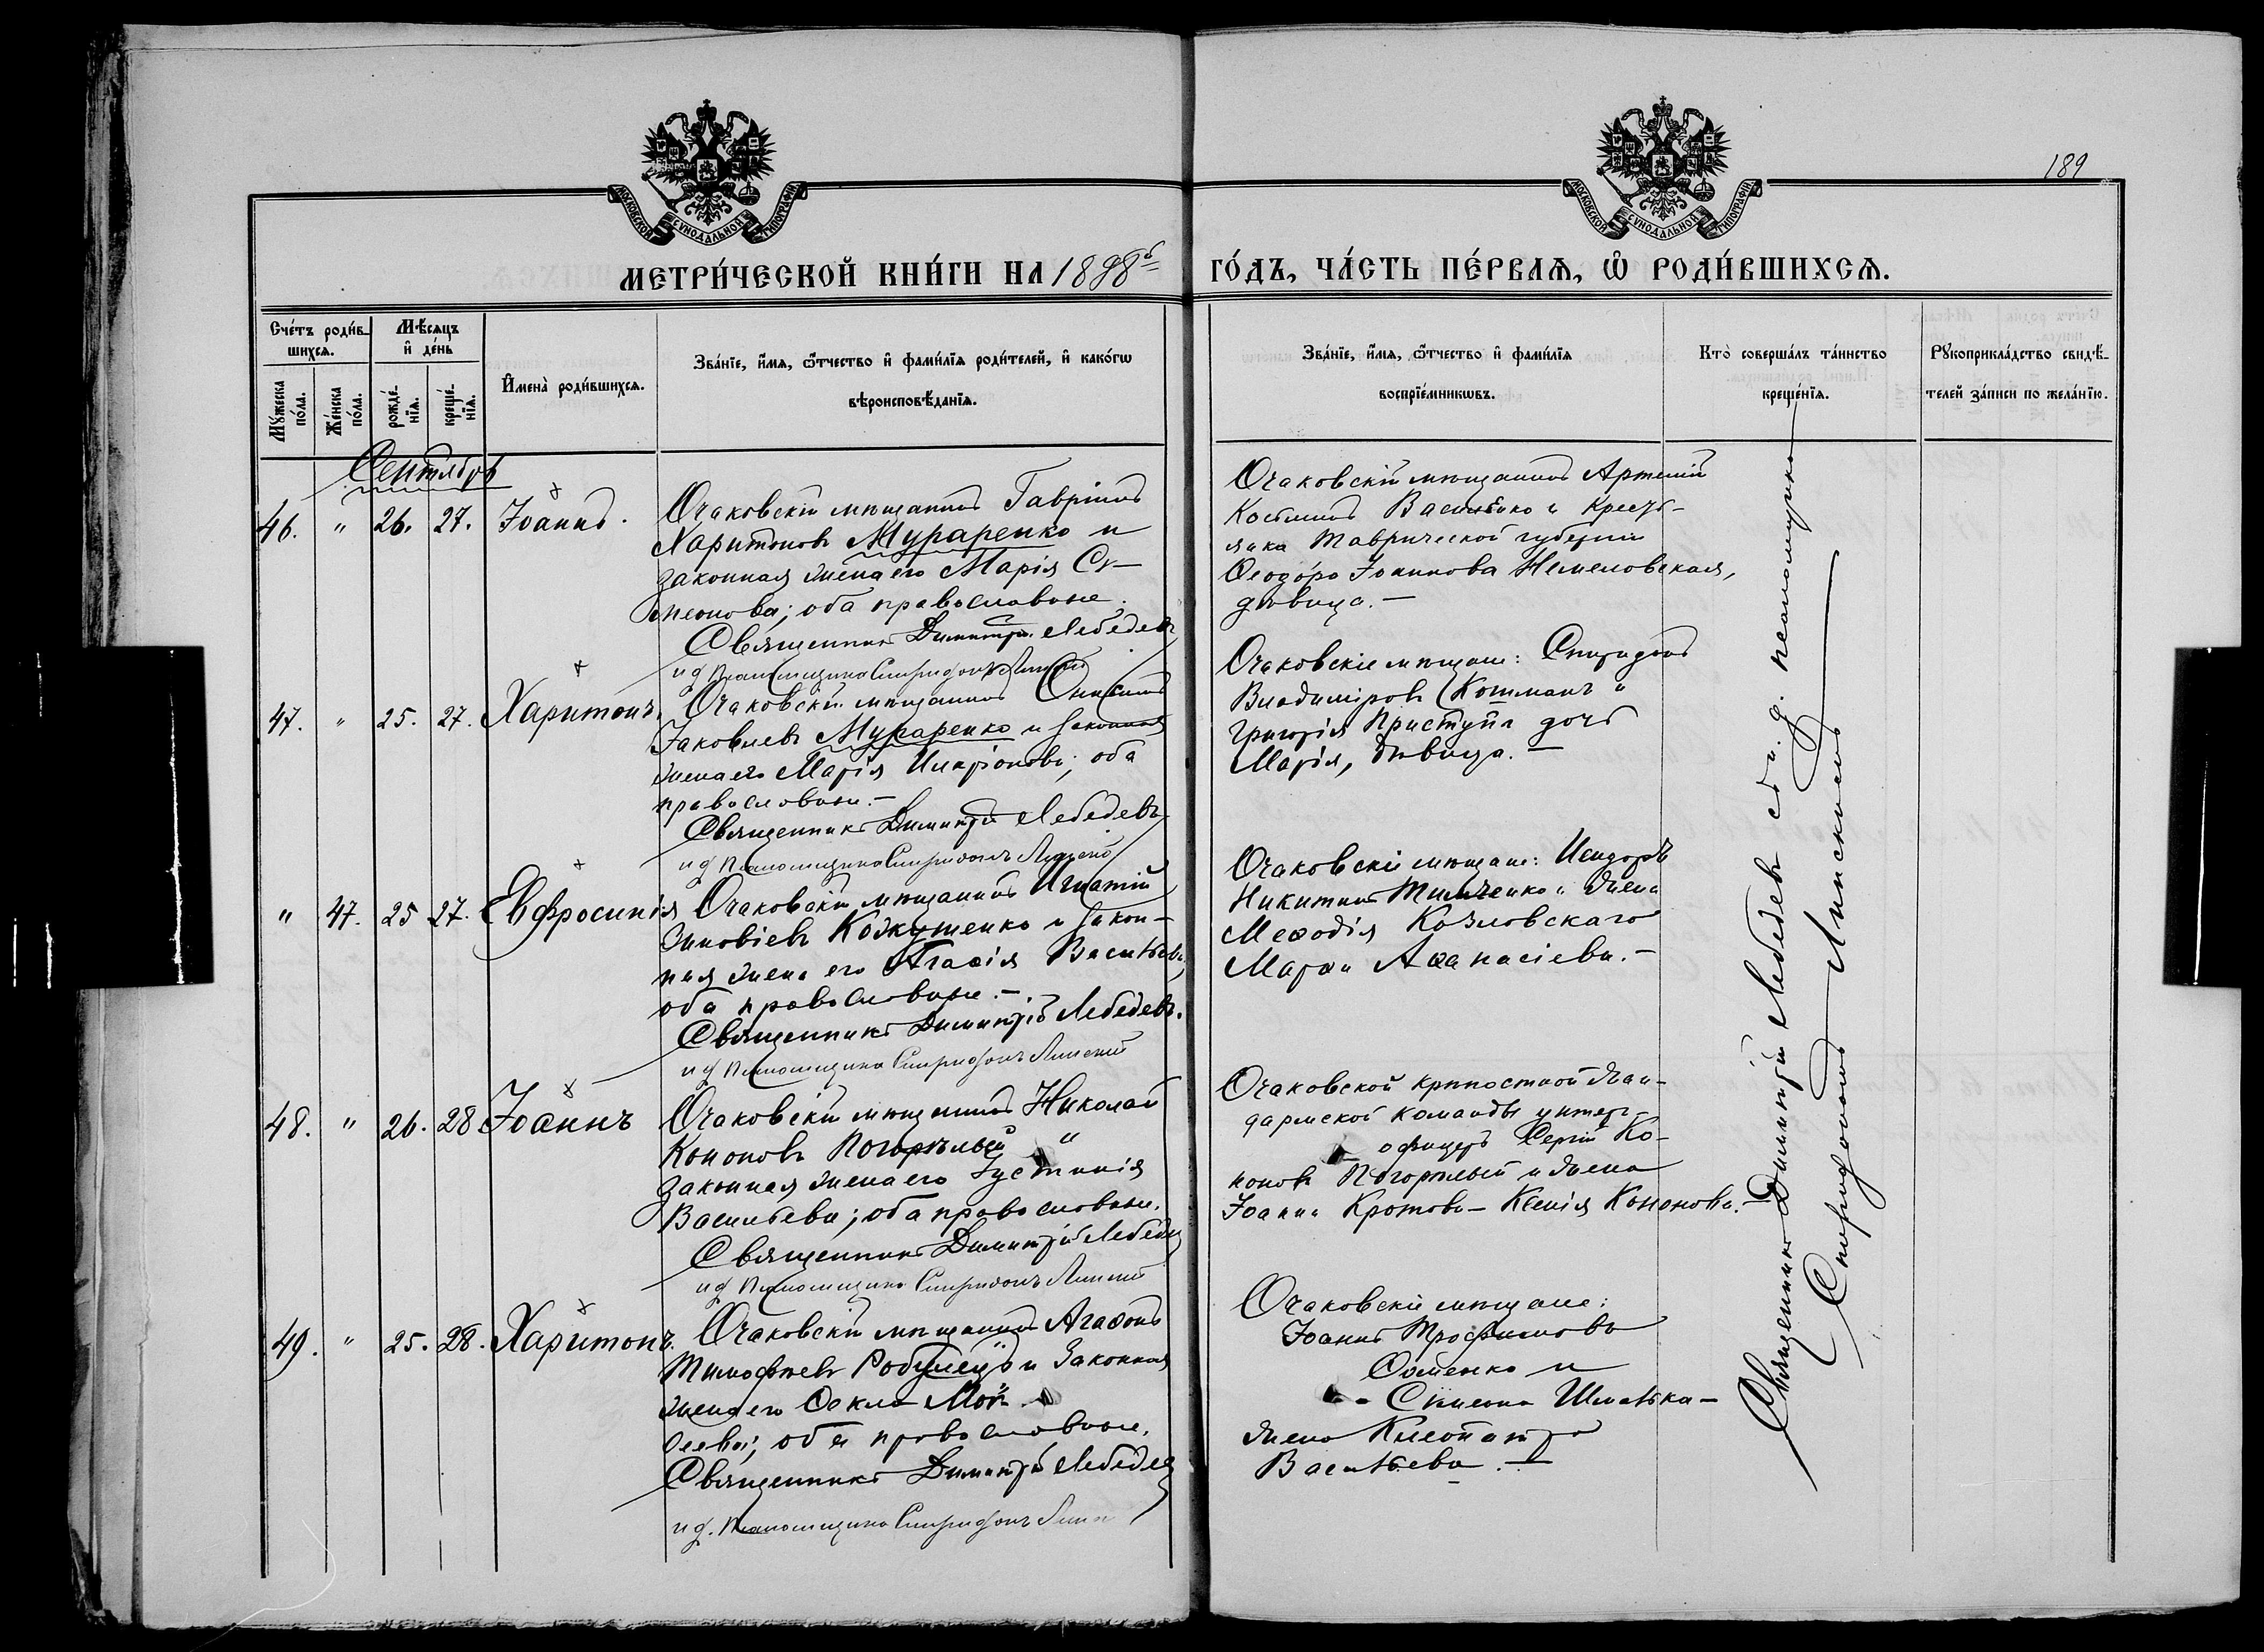 189
МОСКОВСКОЙ СѴНОДАЛЬНОЙ ТИПОГРАФІИ.
МОСКОВСКОЙ СѴНОДАЛЬНОЙ ТИПОГРАФІИ.
МЕТРИ́ЧЕСКОЙ КНИ́ГИ НА 1898й
ГО́ДЪ, ЧА́СТЬ ПЕ́РВАѦ, Ѽ РОДИ́ВШИХСѦ.
Сче́тъ роди́в-
шихсѧ.
Мꙋжеска по́ла.
Же́нска по́ла.
Мѣ́сѧцъ
и҆ де́нь
рожде́-
нїѧ.
креще́-
нїѧ.
И҆мена̀ роди́вшихсѧ.
Зва́нїе, и҆́мѧ, ѻ҆́тчество и҆ фами́лїѧ роди́телей, и҆ како́гѡ
вѣроисповѣ́данїѧ.
Зва́нїе, и҆́мѧ, ѻ҆́тчество и҆ фами́лїѧ
воспрїе́мникѡвъ.
Кто̀ соверша́лъ та́инство
креще́нїѧ.
Рꙋкоприкла́дство свидѣ́-
телей за́писи по жела́нїю.
Сентябрь
46. " 26. 27. Іоаннъ.
Очаковскій мѣщанинъ Гавріилъ
Харитоновъ Мураренко и
законная жена его Марія Си-
меонова; оба православные.
Священникъ Димитрій Лебедевъ
и д псаломщика Спиридонъ Липскій
Очаковскій мѣщанинъ Артемій
Косминъ Василенко и Кресть-
янка Таврической губерніи
Ѳеодора Іоаннова Немеловская,
дѣвица. —
47. " 25. 27. Харитонъ.
Очаковскій мѣщанинъ
Іаковлевъ Мураренко и законная
жена его Марія Иларіонова; оба
православные. —
Священникъ Димитрій Лебедевъ
и д псаломщика Спиридонъ Липскій
Очаковскіе мѣщане: Спиридонъ
Владиміровъ Котманъ и
Григорія Приступа дочь
Марія, дѣвица. —
" 47. 25 27. Евфросинія
Очаковскій мѣщанинъ Игнатій
Зиновіевъ Кожушенко и закон-
ная жена его Агаѳія Васильева,
оба православные. —
Священникъ Димитрій Лебедевъ.
и д псаломщика Спиридонъ Липскій
Очаковскіе мѣщане: Исидоръ
Никитинъ Тимченко и жена
Меѳодія Козловскаго
Марѳа Аѳанасіева. —
48. " 26. 28 Іоаннъ
Очаковскій мѣщанинъ Николай
Кононовъ Погорѣлый и
законная жена его Іустинія
Васильева; оба православные.
Священникъ Димитрій Лебедевъ
и д псаломщика Спиридонъ Липскій
Очаковской крѣпостной жан-
дармской команды унтеръ-
офицеръ Сергій Ко-
ноновъ Погорѣлый и жена
Іоанна Кротова — Ксенія Кононова. —
49. " 25. 28. Харитонъ.
Очаковскій мѣщанинъ Агаѳонъ
Тимофѣевъ и законная
жена его Ѳекла Мои-
сеева; оба православные.
Священникъ Димитрій Лебедевъ
и д. псаломщика Спиридонъ Липскій
Очаковскіе мѣщане:
Іоаннъ Трофимовъ
Ѳоменко и
Симеона Шматька —
жена Клеопатра
Васильева. —
Священникъ Димитрій Лебедевъ съ и. д. псаломщика
Спиридономъ Липскимъ